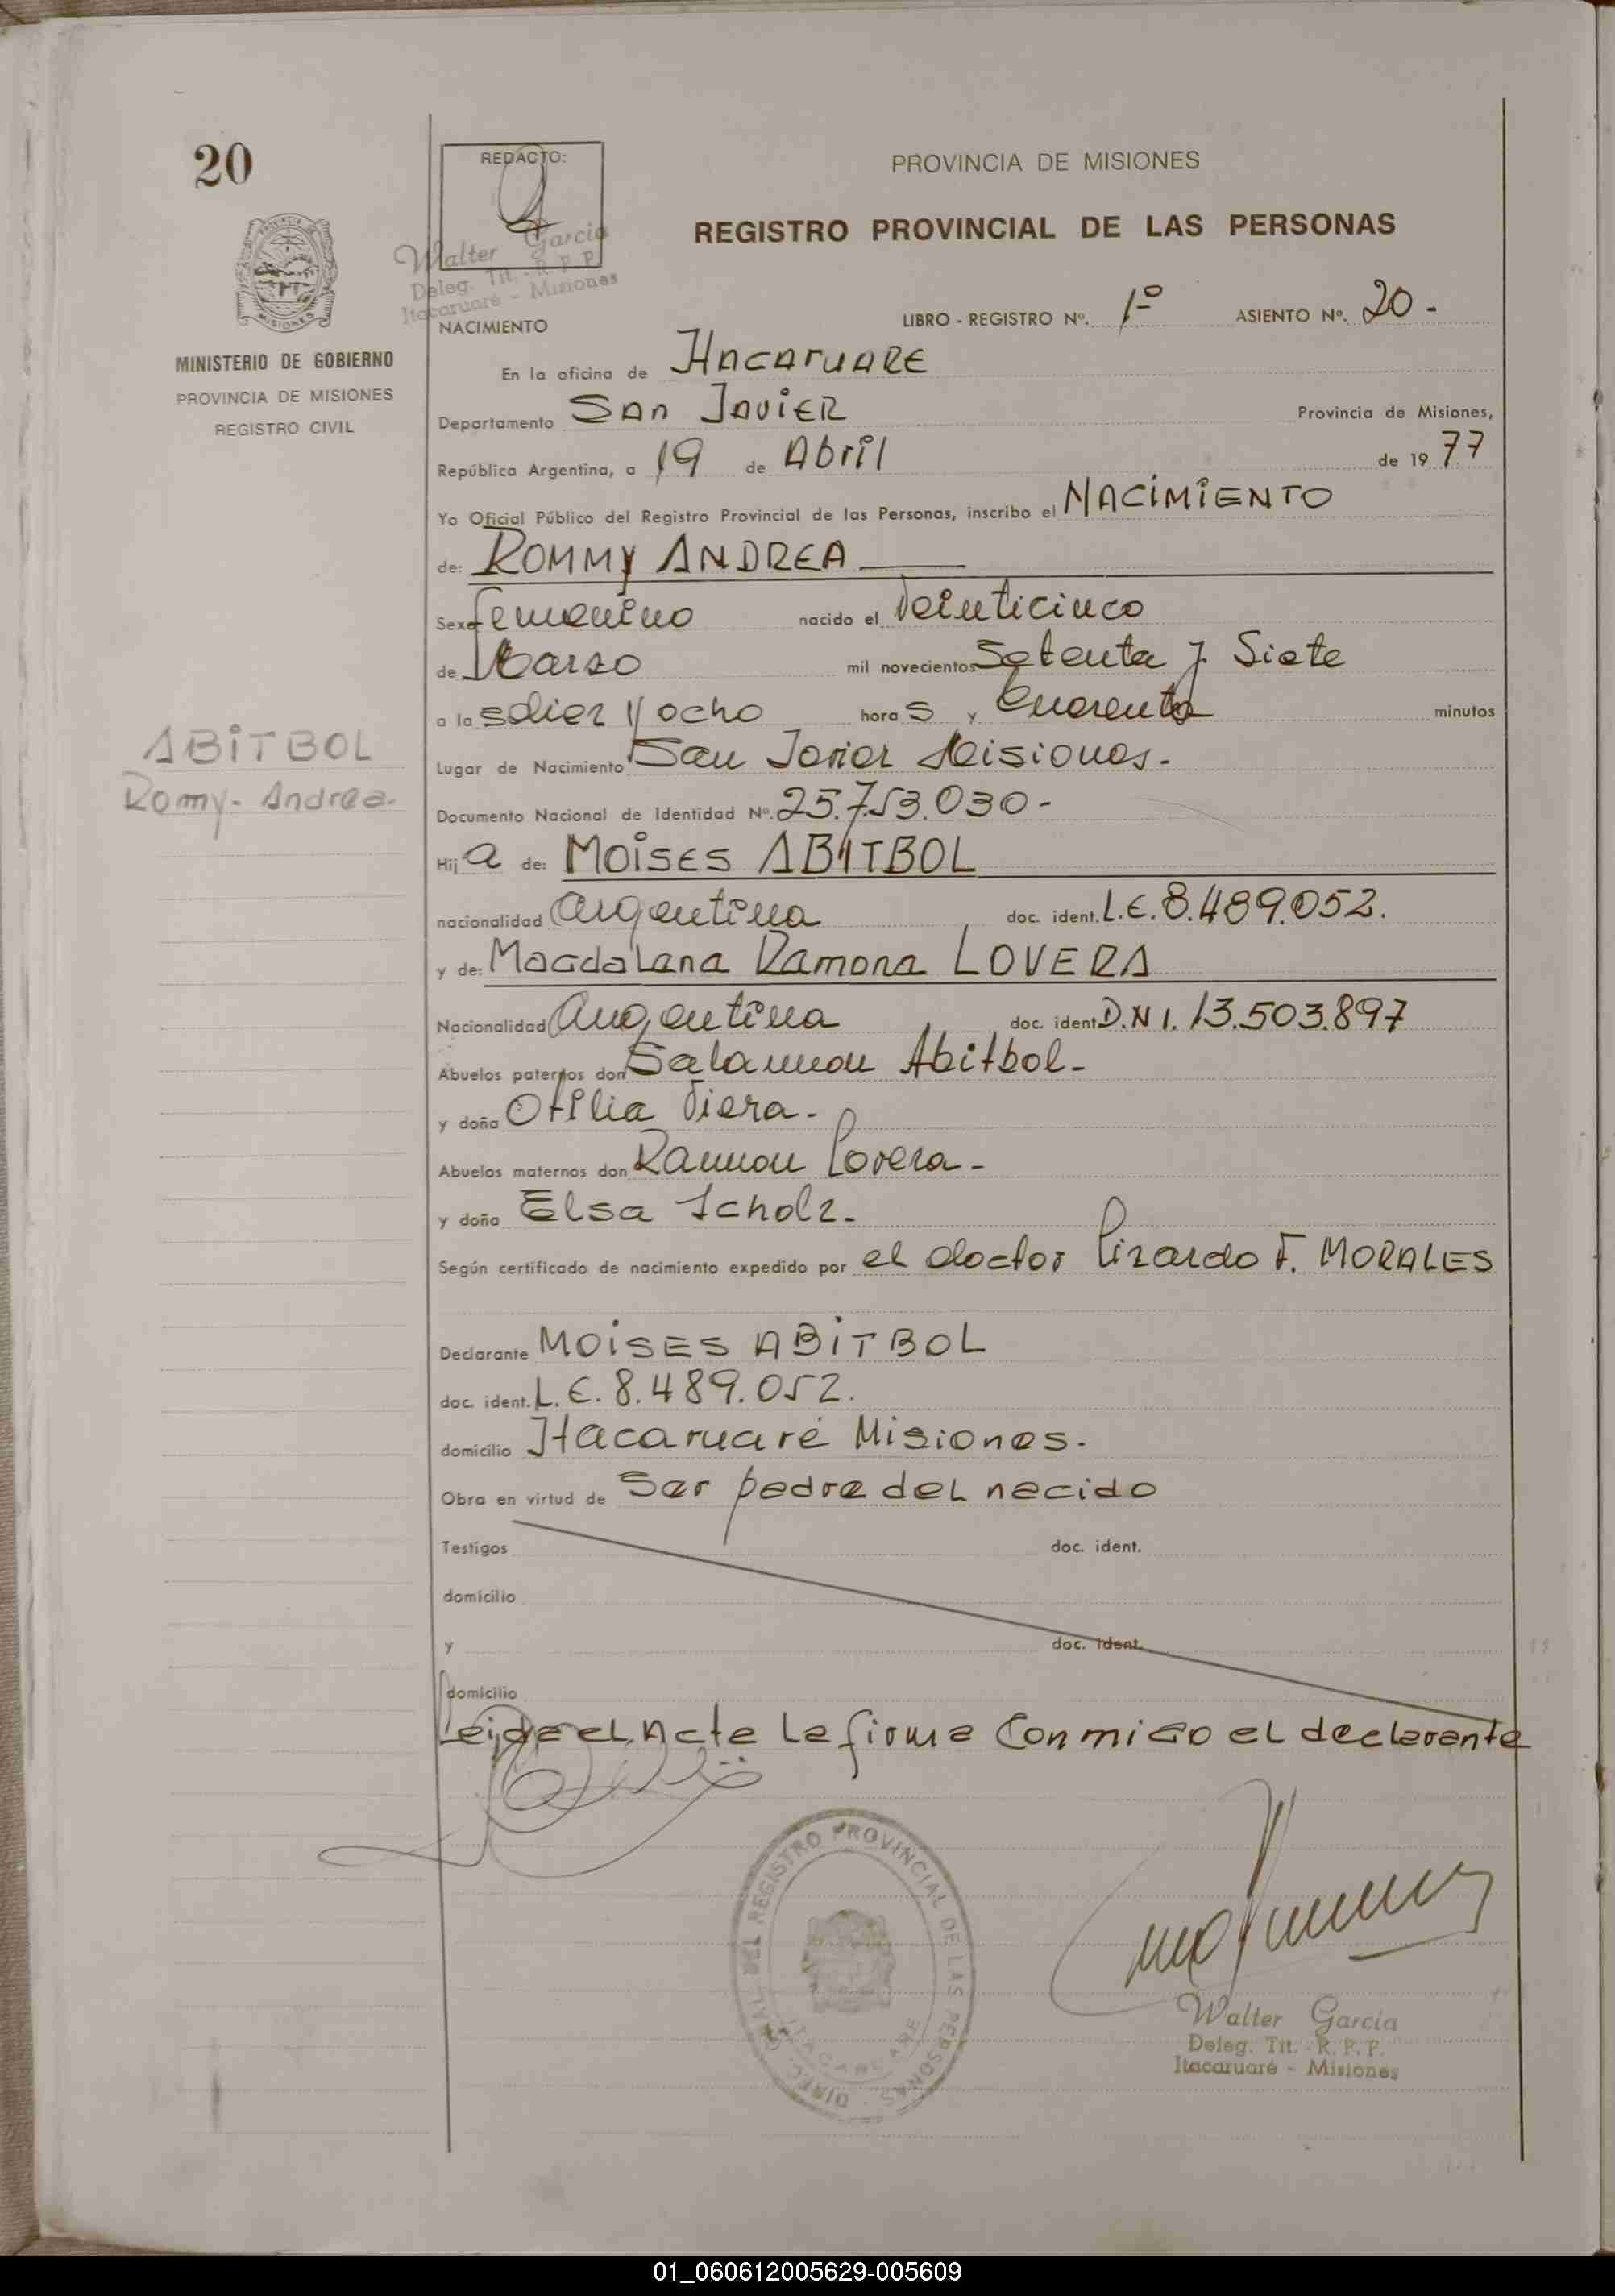 20
REDACTO:
Walter Garcia
Deleg. Tit. - R. P. P.
Itacaruaré - Misiones
PROVINCIA DE MISIONES
REGISTRO PROVINCIAL DE LAS PERSONAS
PROVINCIA DE MISIONES
MINISTERIO DE GOBIERNO
PROVINCIA DE MISIONES
REGISTRO CIVIL
NACIMIENTO
LIBRO - REGISTRO Nº. 1º ASIENTO Nº. 20 -
En la oficina de ITACARUARE
Departamento SAN JAVIER Provincia de Misiones,
República Argentina, a 19 de Abril de 19 77
Yo Oficial Público del Registro Provincial de las Personas, inscribo el NACIMIENTO
de: ROMMY ANDREA
Sexo femenino nacido el Veinticinco
de Marzo mil novecientos Setenta y Siete
a la s diez y ocho hora s y Cuarenta minutos
Lugar de Nacimiento San Javier Misiones.-
Documento Nacional de Identidad Nº. 25.753.030-
Hij a de: MOISES ABITBOL
nacionalidad argentina doc. ident. L.E. 8.489.052.
y de: Magdalena Ramona LOVERA
Nacionalidad argentina doc. ident D.N I. 13.503.897
Abuelos paternos don Salammon Abitbol-
y doña Otilia Viera.-
Abuelos maternos don Rammon Lovera-
y doña Elsa Scholz.-
Según certificado de nacimiento expedido por el doctor Lizardo F. MORALES
Declarante MOISES ABITBOL
doc. ident. L.E. 8.489.052.
domicilio Itacaruaré Misiones.
Obra en virtud de Ser padre del nacido
Testigos doc. ident.
domicilio
y doc. ident.
domicilio
Leida el Acta la firma Conmigo el declarante
ABITBOL
Romy- Andrea-
DIREC. GRAL. DEL REGISTRO PROVINCIAL DE LAS PERSONAS
ITACARUARE
Walter Garcia
Deleg. Tit. - R. P. P.
Itacaruaré - Misiones
01_060612005629-005609